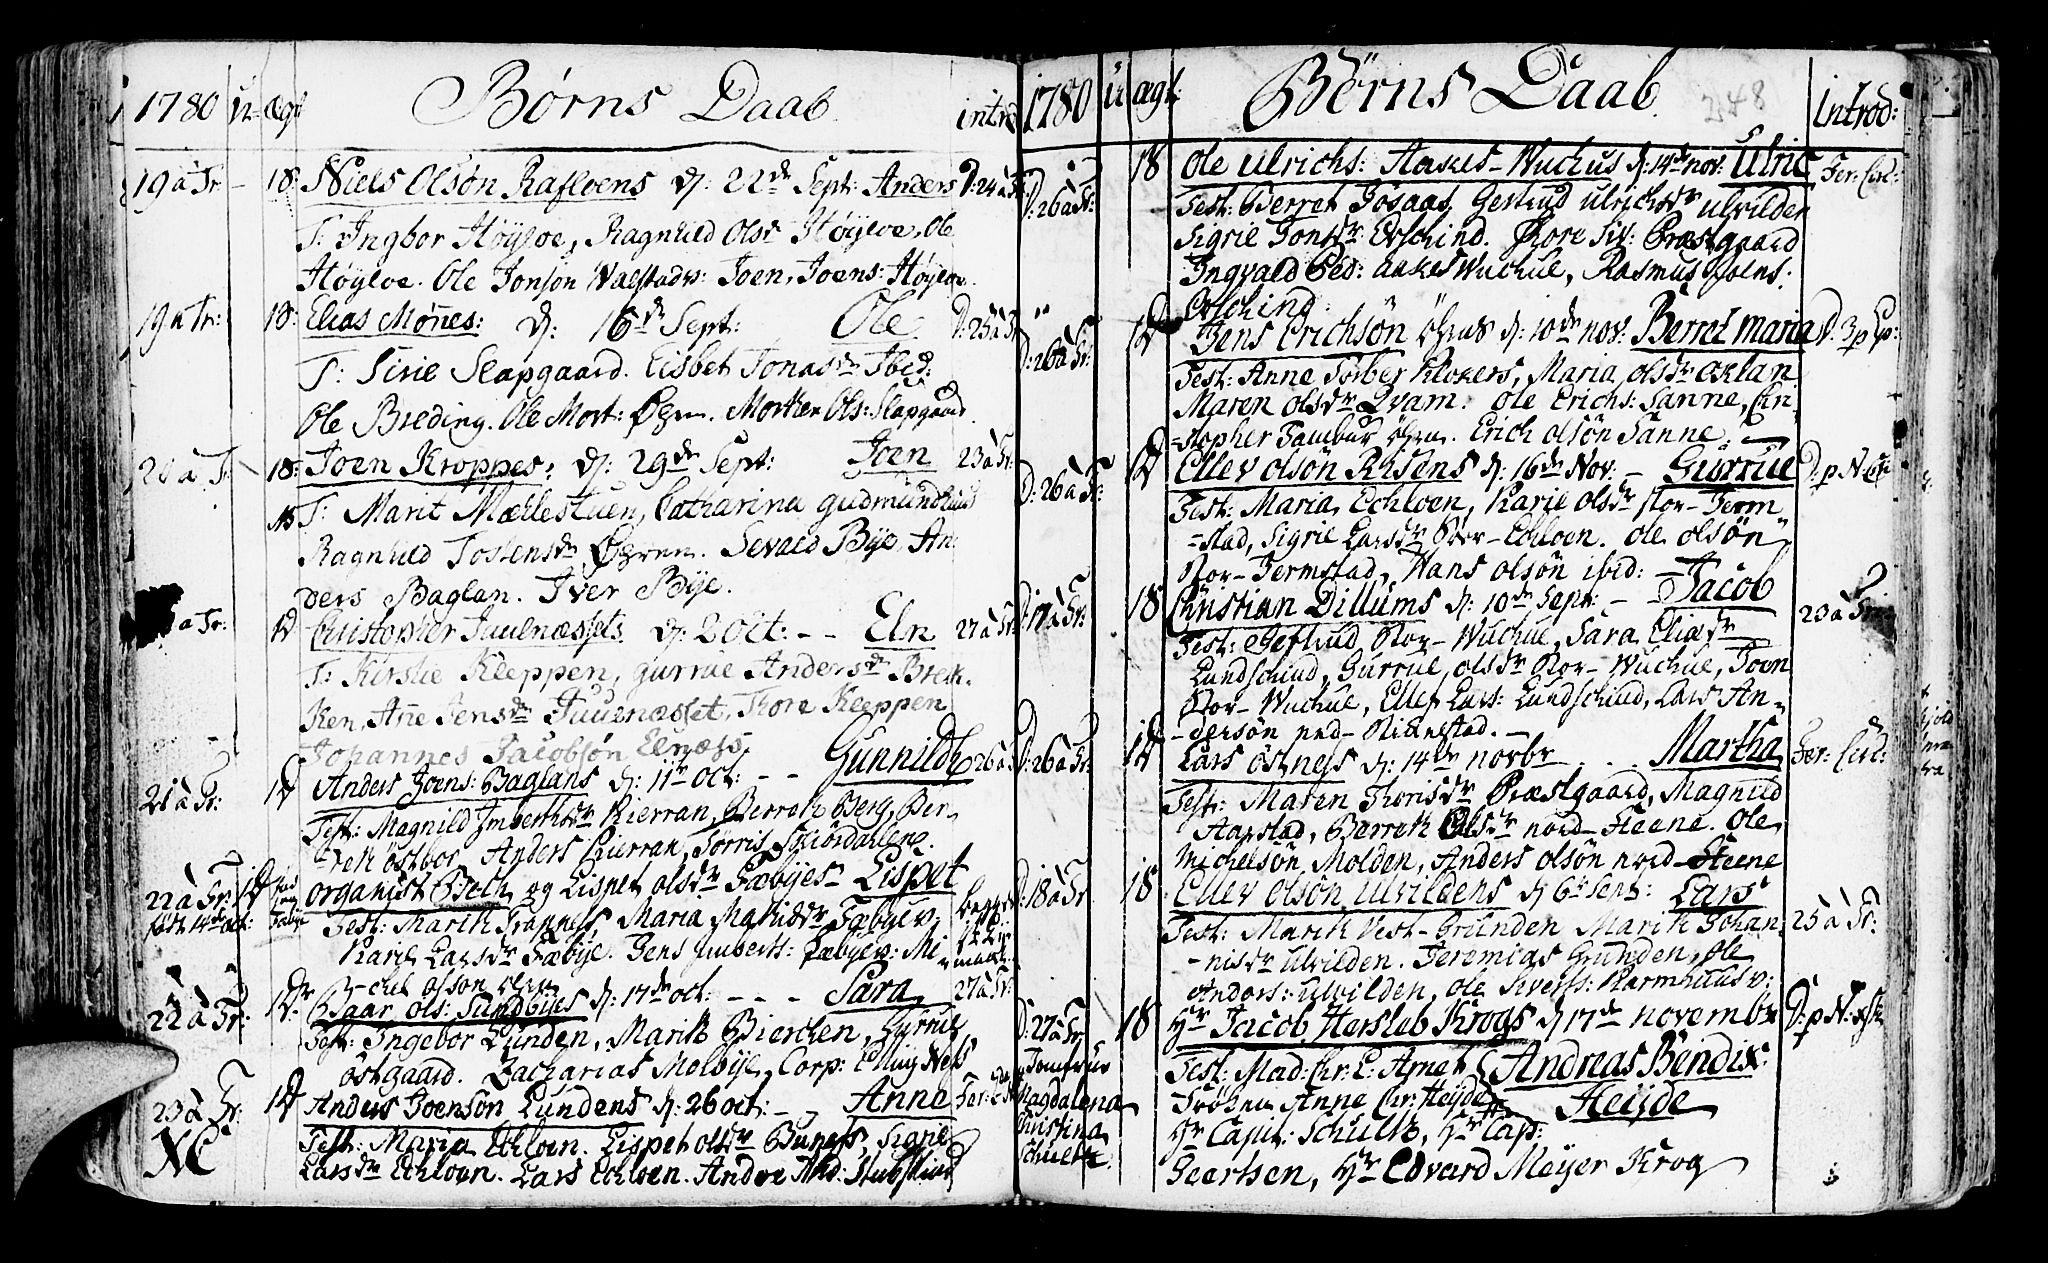 1780 u- ægt Børns Daab. introd
19 à Tr - 18: Niels Olsøn Rafloens d: 22de Sept: Anders D: 24 à Tr
T: Ingbor Høyloe, Ragnhild Olsdr Høyloe, Ole
Høyloe. Ole Jonsøn Valstadv: Joen Joens: Høyloe.
19 à Tr: 18: Elias Møñes: d: 16de Sept: Ole D: 25 à Tr
T: Sirie Slapgaard. Lisbet Jonasdr Ibid:
Ole Breding. Ole Mort: Øgrn. Morthen Ols: Slapgaard
18: Joen Kroppes: d: 29de Sept: Joen 23 à Tr:
T: Marit Mæhlestuen, Catharina Gudmundhuus
Ragnhild Tostensdr Øgren. Sevald Bye, An:
ders Baglan. Iver Bye.
à Tr: Christopher Juuenæssets d: 2 oct: - - Eln 27 à Tr:
T: Kirstie Kleppen, Gurrue Andersdr Brek-
ken, Añe Jensdr Juuenæsset, Thore Kleppen
Johannes Jacobsøn Elnæss.
21 à Tr: Anders Joens: Baglans d: 11te oct: - - Gunnild 26 à Tr
Test: Magnild Imberthsdr Kierran, Berreth Berg, Ber-
reth Østbor, Anders Kierran, Torris Skiørdalene.
22 à Tr: organist Both og Lispet olsdr Fæbyes - Lispet
født 14de oct: Test: Marith Trapnes, Maria Mathiædr Fæbye v:
Karie Larsdr Fæbye. Jens Imberts: Fæbye v: Mi-
-chel olsøn
22 à Tr: Baar ols: Sundbyes d: 17de oct: - - - Sara 27 à Tr:
Test: Ingebor Lunden, Marith Bierchen, Gurrue
østgaard. Zacharias Molbye, Corp: Elling Næss
23 à Tr: Anders Joensøn Lundens d: 26 oct: - Anne
NB Test: Maria Echloen. Lispet olsdr Bunæss, Sigrie
Larsdr Echloen. Lars Echloen. Andre And: Stubskind
1780 u ægt: Børns Daab. 248 Introd:
D: 26 à Tr: 18 Ole Ulrichs: Aakes-Wuchus d: 14de nov: Ulric Fer: Circ:
Test: Berret Jøsaas, Gertrud Ulrichsdr Ulvilden
Sigrie Jonsdr Erschind. Thore Siv: Præstgaard
Ingvald Ped: Aakes Wuchue, Rasmus Joens:
Erschind.
D: 26 à Tr: Jens Erichsøn Øgrens d: 10de nov: Berret Maria D: 3 p Ep:
Test: Anne Torber Klokers, Maria olsdr Oxlan
Maren olsdr Qvam. Ole Erichs: Sanne, Chri-
-stopher Tambur Øgrn. Erich olsøn Sanne:
D: 26 à Tr: Ellev olsøn Risens d: 16de Nov: - Gurrue D: p N:
Test: Maria Echloen, Karie olsdr stor-Jerm
=stad, Sigrie Larsdr Over-Echloen. ole olsøn
Nor-Jermstad, Hans olsøn ibid:
D: 17 à Tr: 18 Christian Dillums d: 10de Sept: - Jacob 23 à Tr:
Test: Gertrud Nor-Wuchue, Sara Eliædr
Lundschind, Gurrue olsdr Nor-Wuchue, Joen
Nor-Wuchue, Ellef Lars: Lundschind, Lars An-
-dersøn ned-
D: 26 à Tr: Lars østness d: 14de novbr - . . Martha Fer: Circ:
Test: Maren Thorisdr Præstgaard, Magnild
Aarstad, Berreth Olsdr nord-Steene. Ole
Michelsøn Molden, Anders olsøn nord-Steene
D: 18 à Tr 18 Ellev olsøn Ulvildens d 6te Sept: Lars 25 à Tr:
Test: Marith Vest-Grunden Marith Johan
-nisdr Ulvilden. Jeremias Grunden, Ole
Anders: Ulvilden, ole Siverts: Karmhuus v:
D: 27 à Tr 18 Hr Jacob Hersleb Krogs d 17de novembr D: p N:
Jomfrue Test: Mad: Chr: E: Arnet Andreas Bendix:
Magdalena Frøken Anne Chr: Heyde Heyde
Christina Hr Capit: Schultz, Hr Cap:
Schultz. Geertsen, Hr Edvard Meyer Krog